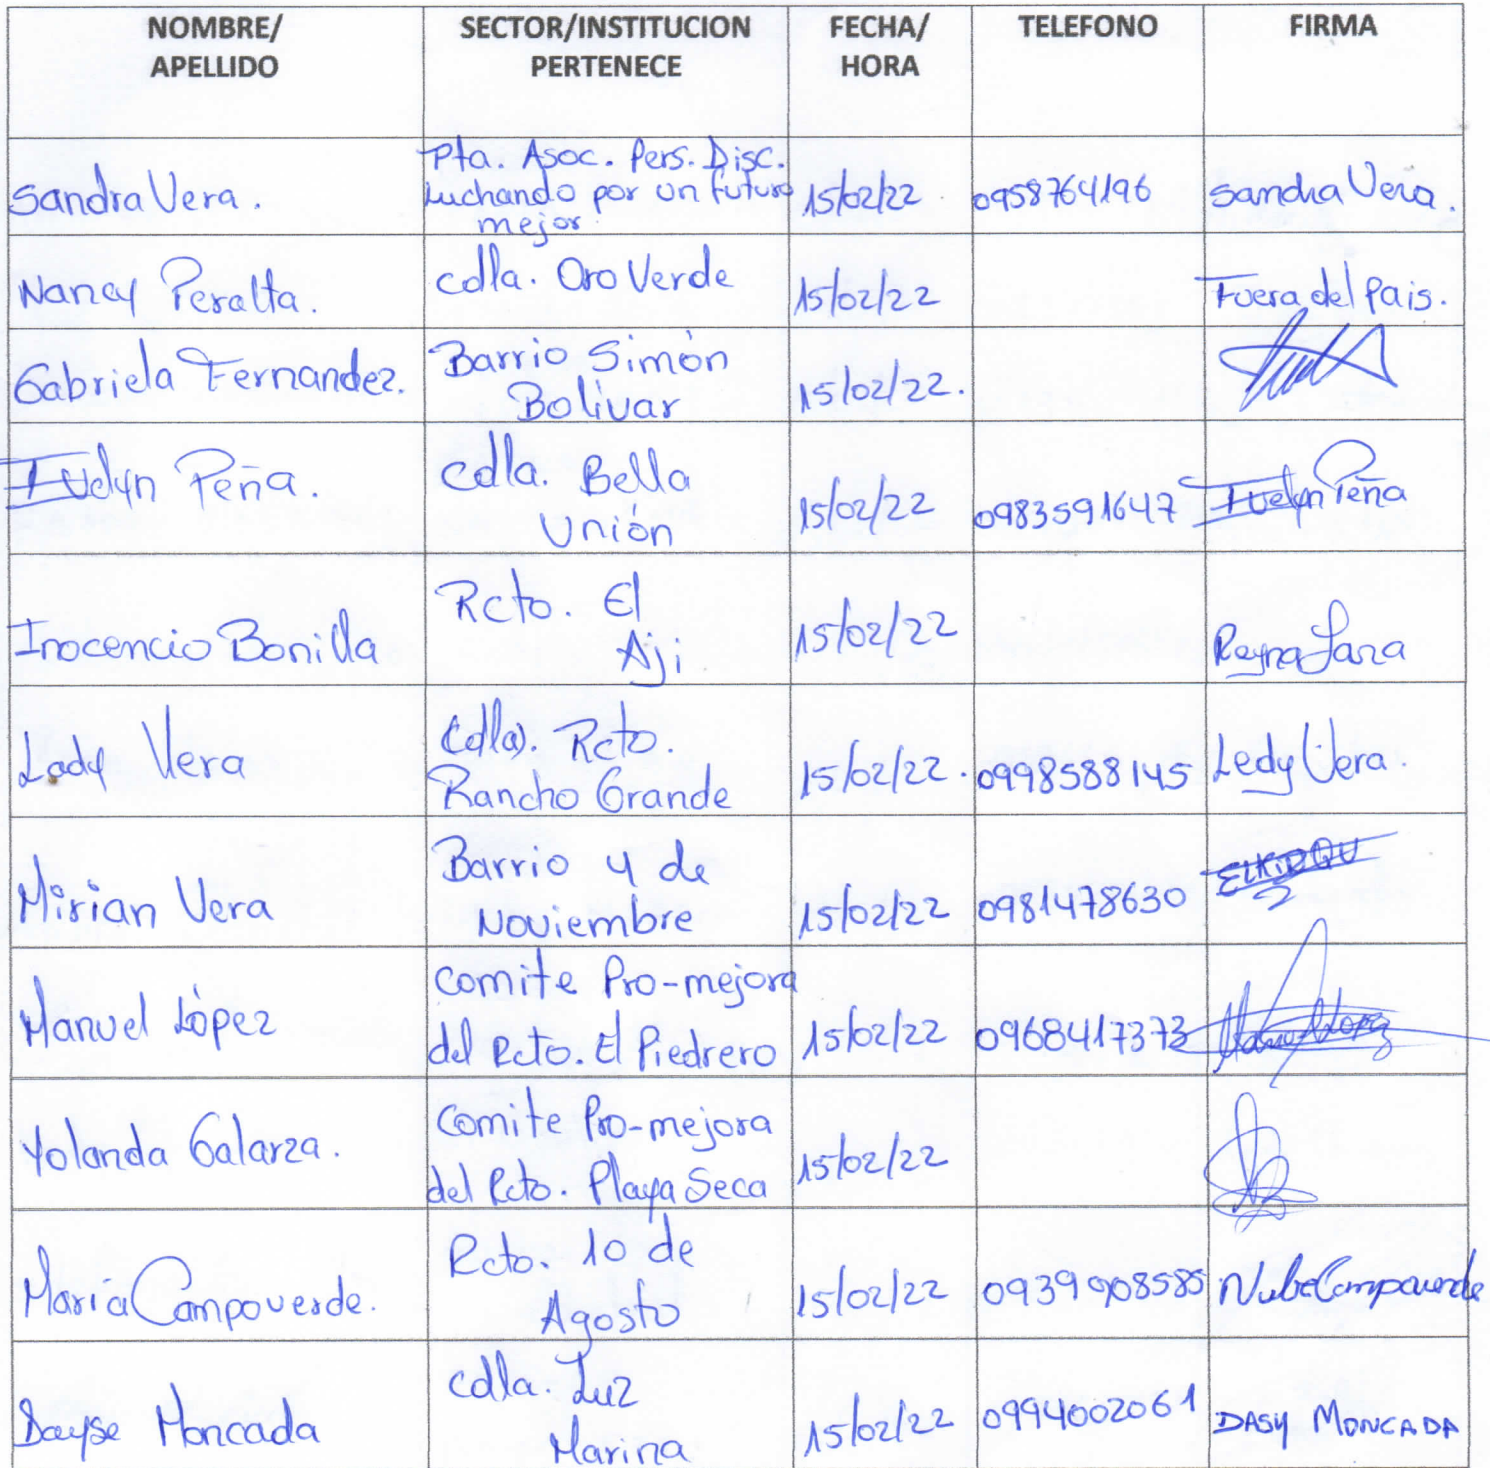 NOMBRE/ APELLIDO SECTOR/INSTITUCION PERTENECE FECHA/ HORA TELEFONO FIRMA
Sandra Vera. Pta. Asoc. Pers. Disc. Luchando por un futuro mejor 15/02/22 0958764196 Sandra Vera.
Nancy Peralta. cdla. Oro Verde 15/02/22 Fuera del Pais.
Gabriela Fernandez. Barrio Simón Bolivar 15/02/22.
Evelyn Peña. cdla. Bella Unión 15/02/22 0983591647 Evelyn Peña
Inocencio Bonilla Rcto. El Aji 15/02/22 Reyna Lara
Lady Vera Cdla. Rcto. Rancho Grande 15/02/22. 0998588145 Ledy Vera.
Mirian Vera Barrio 4 de Noviembre 15/02/22 0981478630
Manuel López Comite Pro-mejora del Rcto. El Piedrero 15/02/22 0968417373 Manuel Lopez
Yolanda Galarza. Comite Pro-mejora del Rcto. Playa Seca 15/02/22
María Campoverde. Rcto. 10 de Agosto 15/02/22 0939908585 Nube Campoverde
Dayse Moncada cdla. Luz Marina 15/02/22 0994002061 DASY MONCADA